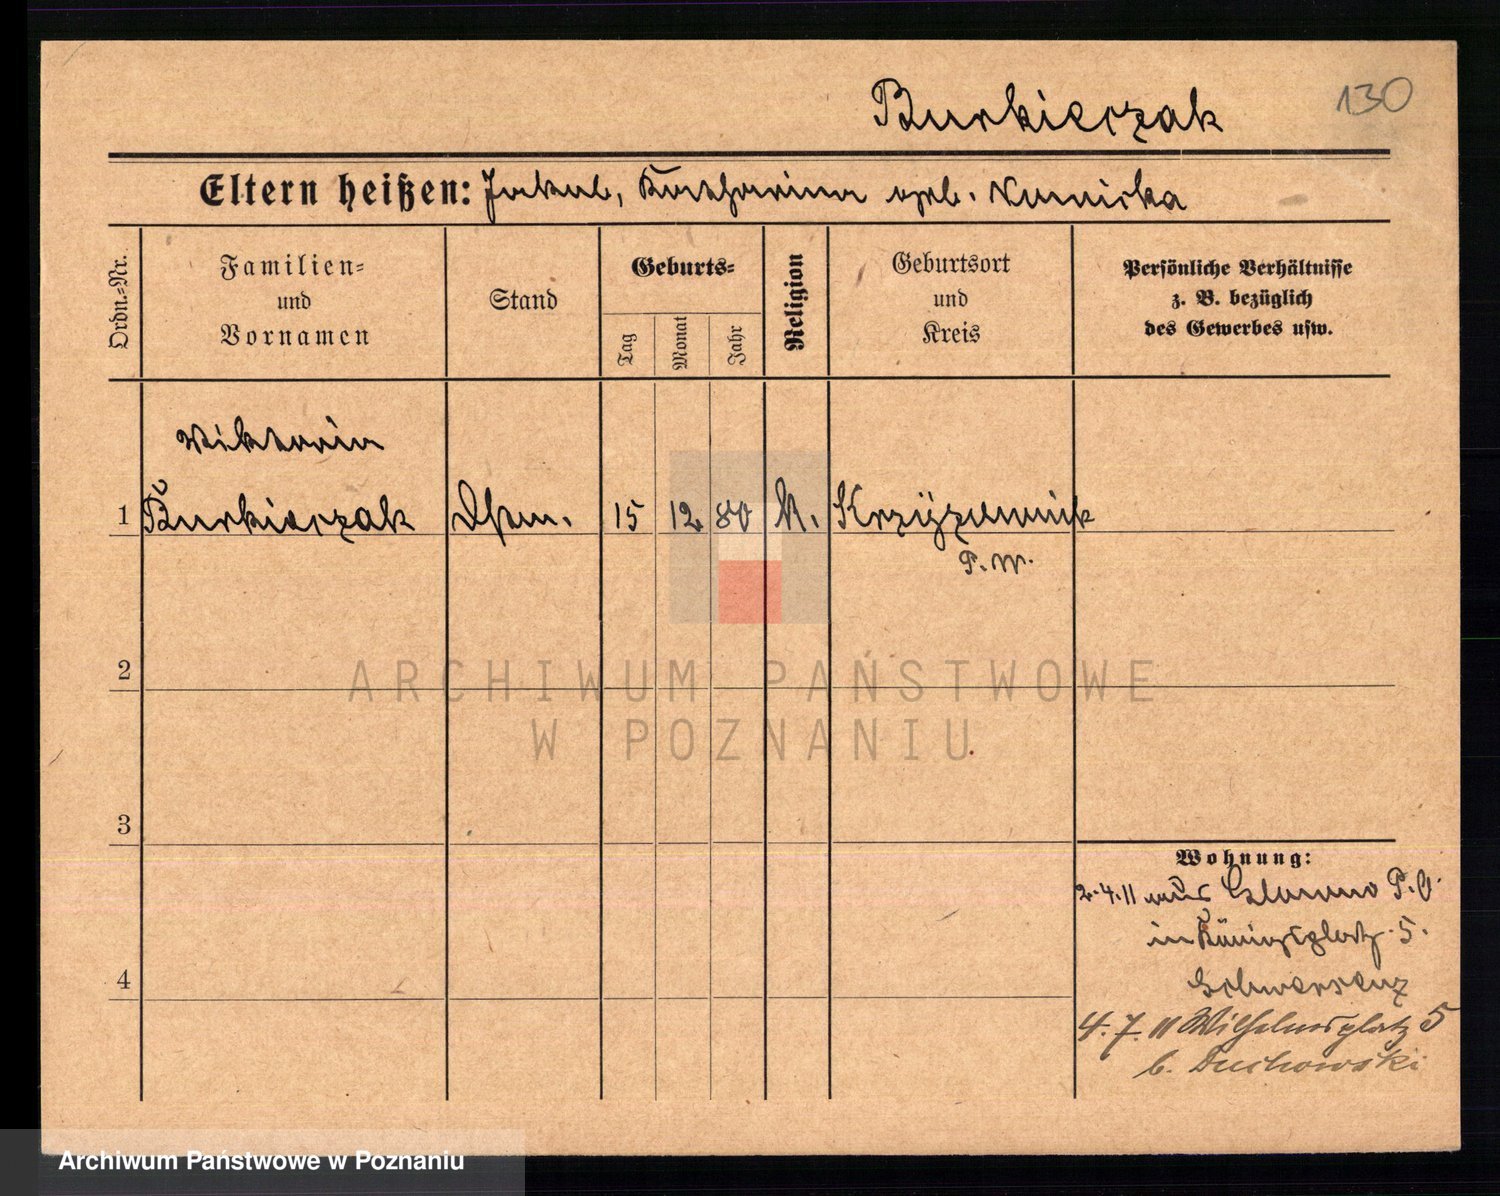 Burkiczak
130
Eltern heißen: Jakub, Katharina geb. Kunicka
Ordn.-Nr.
Familien-
und
Vornamen
Stand
Geburts-
Tag
Monat
Jahr
Religion
Geburtsort
und
Kreis
Persönliche Verhältnisse
z. B. bezüglich
des Gewerbes usw.
Viktoria
1 Burkiczak 15 12 80 K. Krzyżownik
P. W.
2
3
4
Wohnung:
2.4.11 aus P. O.
in Königsplatz 5.
Schwersenz
4.7.11 Wilhelmsplatz 5
b. Duchowski
ARCHIWUM PAŃSTWOWE
W POZNANIU
Archiwum Państwowe w Poznaniu